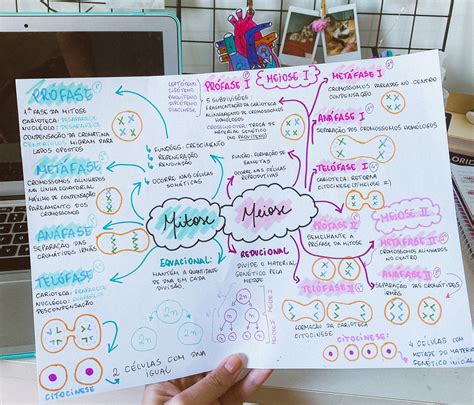 PRÓFASE
1ª FASE DA MITOSE
CARIOTECA: DESAPARECE
NUCLÉOLO: DESAPARECE
CONDENSAÇÃO DA CROMATINA
CENTRÍOLOS MIGRAM PARA
LADOS OPOSTOS
METÁFASE
CROMOSSOMOS ALINHADOS
NA LINHA EQUATORIAL
MÁXIMO DE CONDENSAÇÃO
PAREAMENTO DOS
CROMOSSOMOS
ANÁFASE
SEPARAÇÃO DAS
CROMÁTIDES IRMÃS
TELÓFASE
CARIOTECA:
NUCLÉOLO:
DESCONDENSAÇÃO
CITOCINESE
2 CÉLULAS COM DNA
IGUAL
FUNÇÕES: CRESCIMENTO
REGENERAÇÃO
RENOVAÇÃO
OCORRE NAS CÉLULAS
SOMÁTICAS
Mitose
EQUACIONAL:
MANTÉM A QUANTIDADE
DE DNA EM CADA
DIVISÃO.
2n
2n
2n
LEPTÓTENO
ZIGÓTENO
PAQUÍTENO
DIPLÓTENO
DIACINESE
PRÓFASE I
5 SUBDIVISÕES
FRAGMENTAÇÃO DA CARIOTECA
ALINHAMENTO DE CROMOSSOMOS
HOMÓLOGOS
CROSSING-OVER: TROCA DE
MATERIAL GENÉTICO (NO
PAQUÍTENO)
MEIOSE I
FUNÇÃO: FORMAÇÃO DE
GAMETAS
OCORRE NAS CÉLULAS
REPRODUTIVAS
Meiose
REDUCIONAL:
DIVIDE O MATERIAL
GENÉTICO PELA
METADE
2n
MEIOSE I
MEIOSE II
METÁFASE I
CROMOSSOMOS PAREADOS NO CENTRO
CONDENSAÇÃO
ANÁFASE I
SEPARAÇÃO DOS CROMOSSOMOS HOMÓLOGOS
TELÓFASE I
CARIOTECA: REFORMA
CITOCINESE (1ª MEIOSE I)
PRÓFASE II
SEMELHANTE A
PRÓFASE DA MITOSE
MEIOSE II
METÁFASE II
CROMOSSOMOS NO
CENTRO
ANÁFASE II
SEPARAÇÃO DAS
CROMÁTIDES IRMÃS
TELÓFASE II
FORMAÇÃO DA CARIOTECA
CITOCINESE
CITOCINESE:
4 CÉLULAS COM
METADE DO MATERIAL
GENÉTICO INICIAL